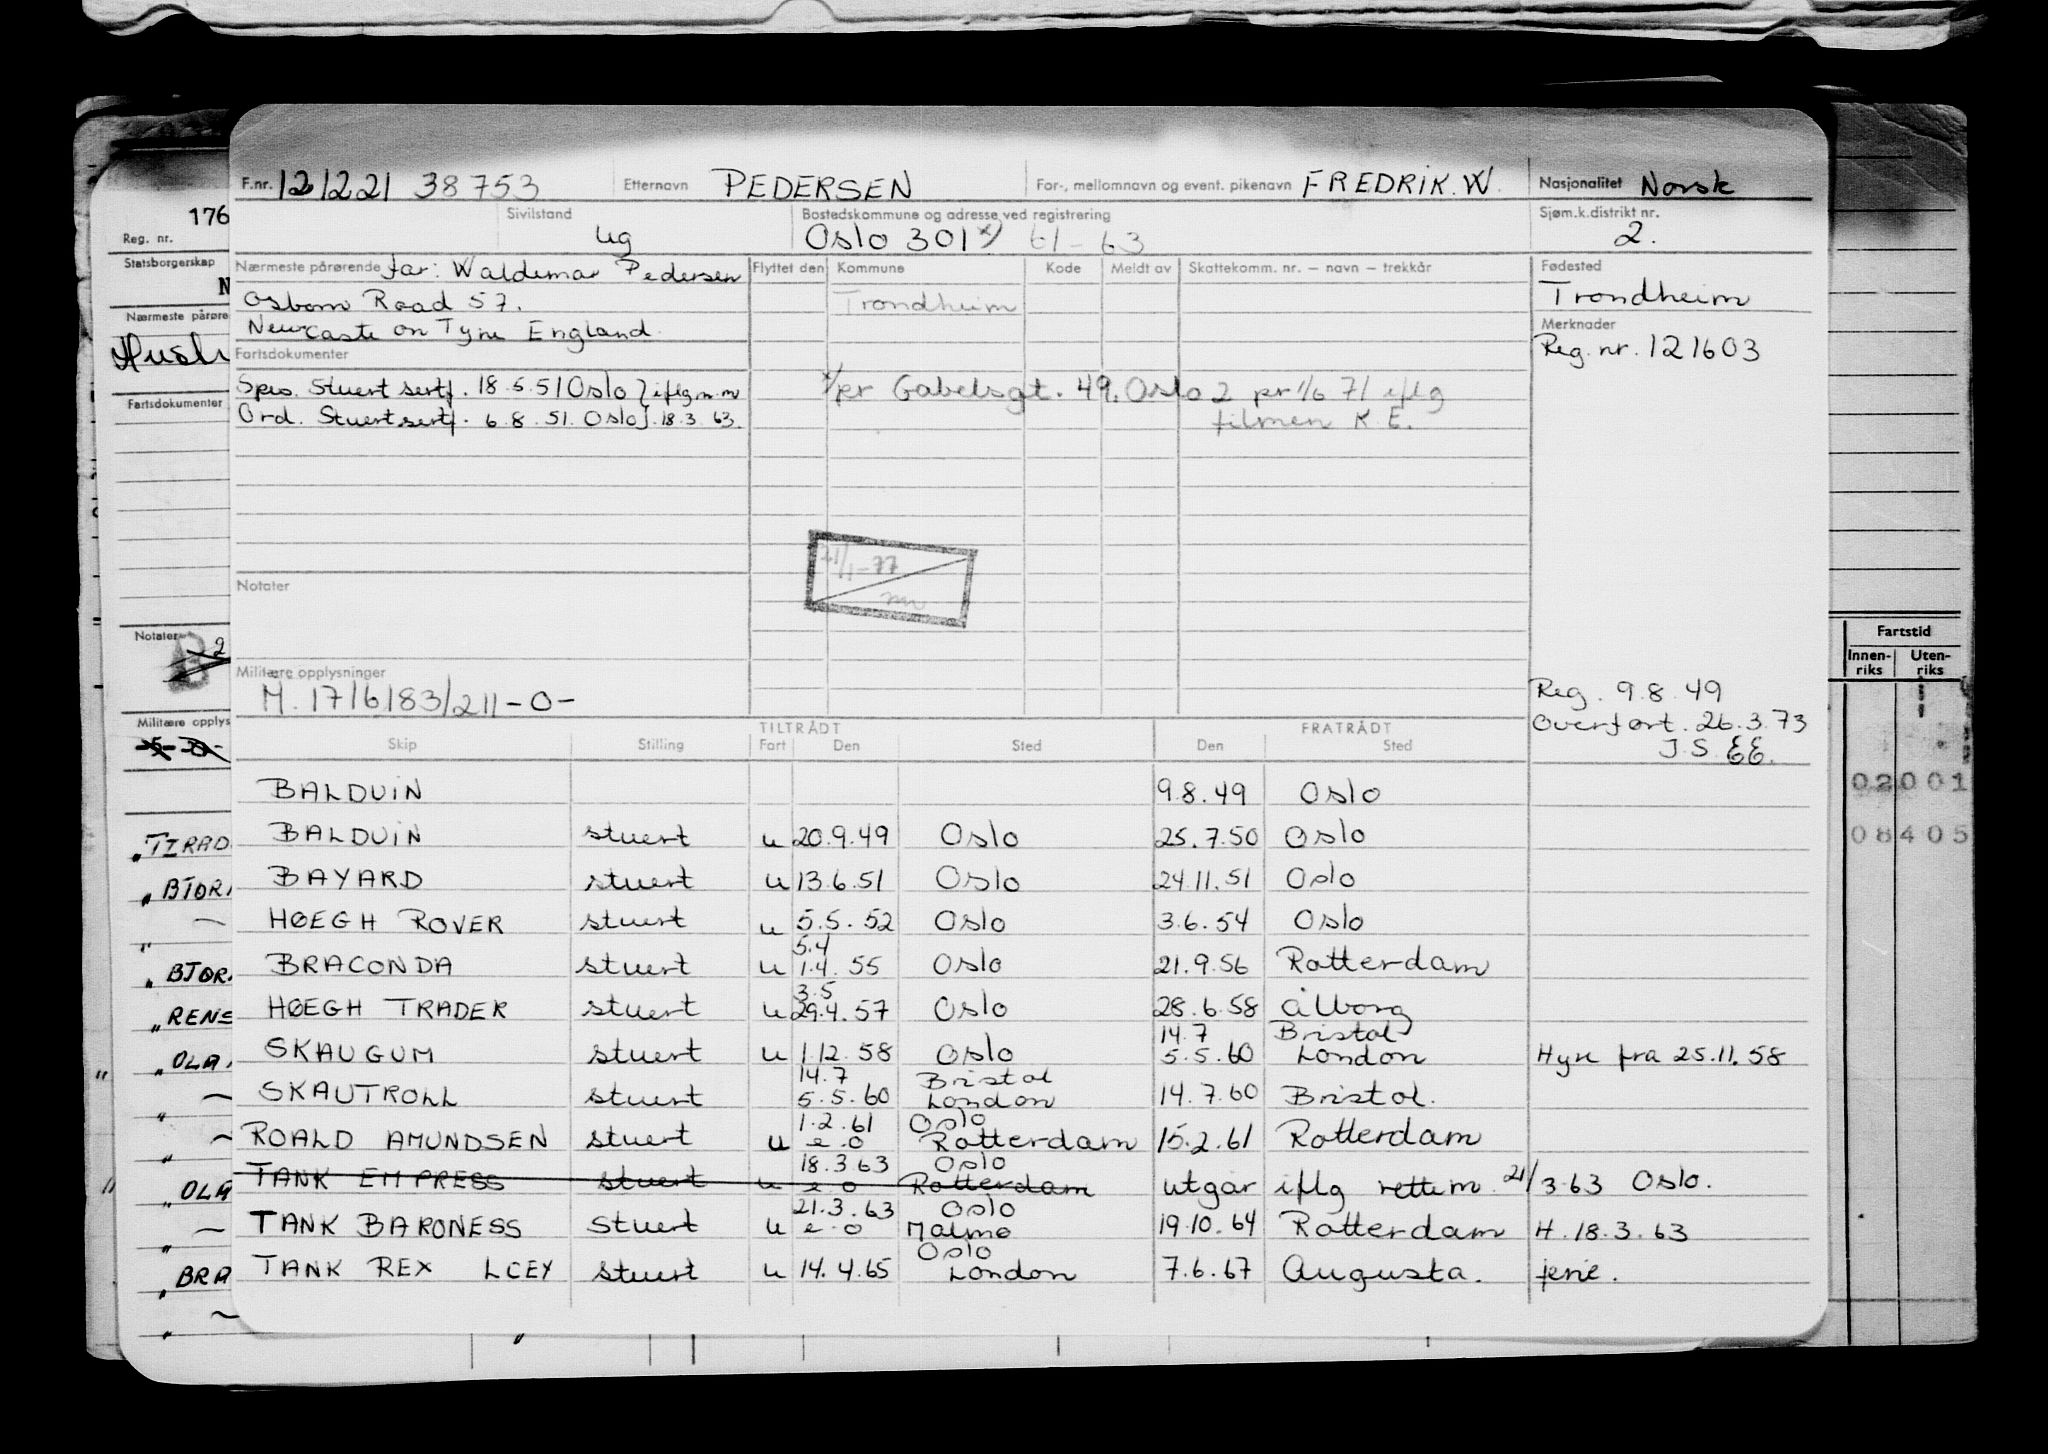 F.nr. 121221 38753 Etternavn PEDERSEN For-, mellomnavn og event. pikenavn FREDRIK. W. Nasjonalitet Norsk
176
Reg. nr.
Sivilstand Bostedskommune og adresse ved registrering Sjøm.k.distrikt nr.
ug Oslo 301 x) 61-63 2.
Statsborgerskap
N
Nærmeste pårørende far: Waldemar Pedersen Flyttet den Kommune Kode Meldt av Skattekomm. nr. – navn – trekkår Fødested
Osborn Road 57. Trondheim Trondheim
Nærmeste pårøre
Newcaste on Tyne England. Merknader
Reg. nr. 121603
Fartsdokumenter
Spes. Stuert sertf. 18.5.51 Oslo } iflg m.m x/pr Gabelsgt. 49. Oslo 2 pr 1/6 71 iflg
Fartsdokumenter
Ord. Stuert sertf. 6.8.51. Oslo }. 18.3.63. filmen K.E.
21/1-77
Notater
Notater
Fartstid
Innen-riks Uten-riks
Militære opplysninger
M. 17/6/83/211-0- Reg. 9.8.49
Militære opplys
Overført. 26.3.73
J.S. EE.
TILTRÅDT FRATRÅDT
Skip Stilling Fart Den Sted Den Sted
BALDUIN 9.8.49 Oslo
02001
BALDUIN stuert u 20.9.49 Oslo 25.7.50 Oslo
08405
BAYARD stuert u 13.6.51 Oslo 24.11.51 Oslo
HØEGH ROVER stuert u 5.5.52 Oslo 3.6.54 Oslo
5.4
BRACONDA stuert u 1.4.55 Oslo 21.9.56 Rotterdam
3.5
HØEGH TRADER stuert u 29.4.57 Oslo 28.6.58 Ålborg
14.7 Bristol
SKAUGUM stuert u 1.12.58 Oslo 5.5.60 London Hyre fra 25.11.58
14.7 Bristol
SKAUTROLL stuert 5.5.60 London 14.7.60 Bristol.
1.2.61 Oslo
ROALD AMUNDSEN stuert u e.o Rotterdam 15.2.61 Rotterdam
18.3.63 Oslo
TANK EMPRESS stuert u e o Rotterdam utgår iflg rettem. 21/3.63 Oslo.
21.3.63 Oslo
TANK BARONESS stuert u e.o Malmø 19.10.64 Rotterdam H. 18.3.63
Oslo
TANK REX LCEY stuert u 14.4.65 London 7.6.67 Augusta. ferie.